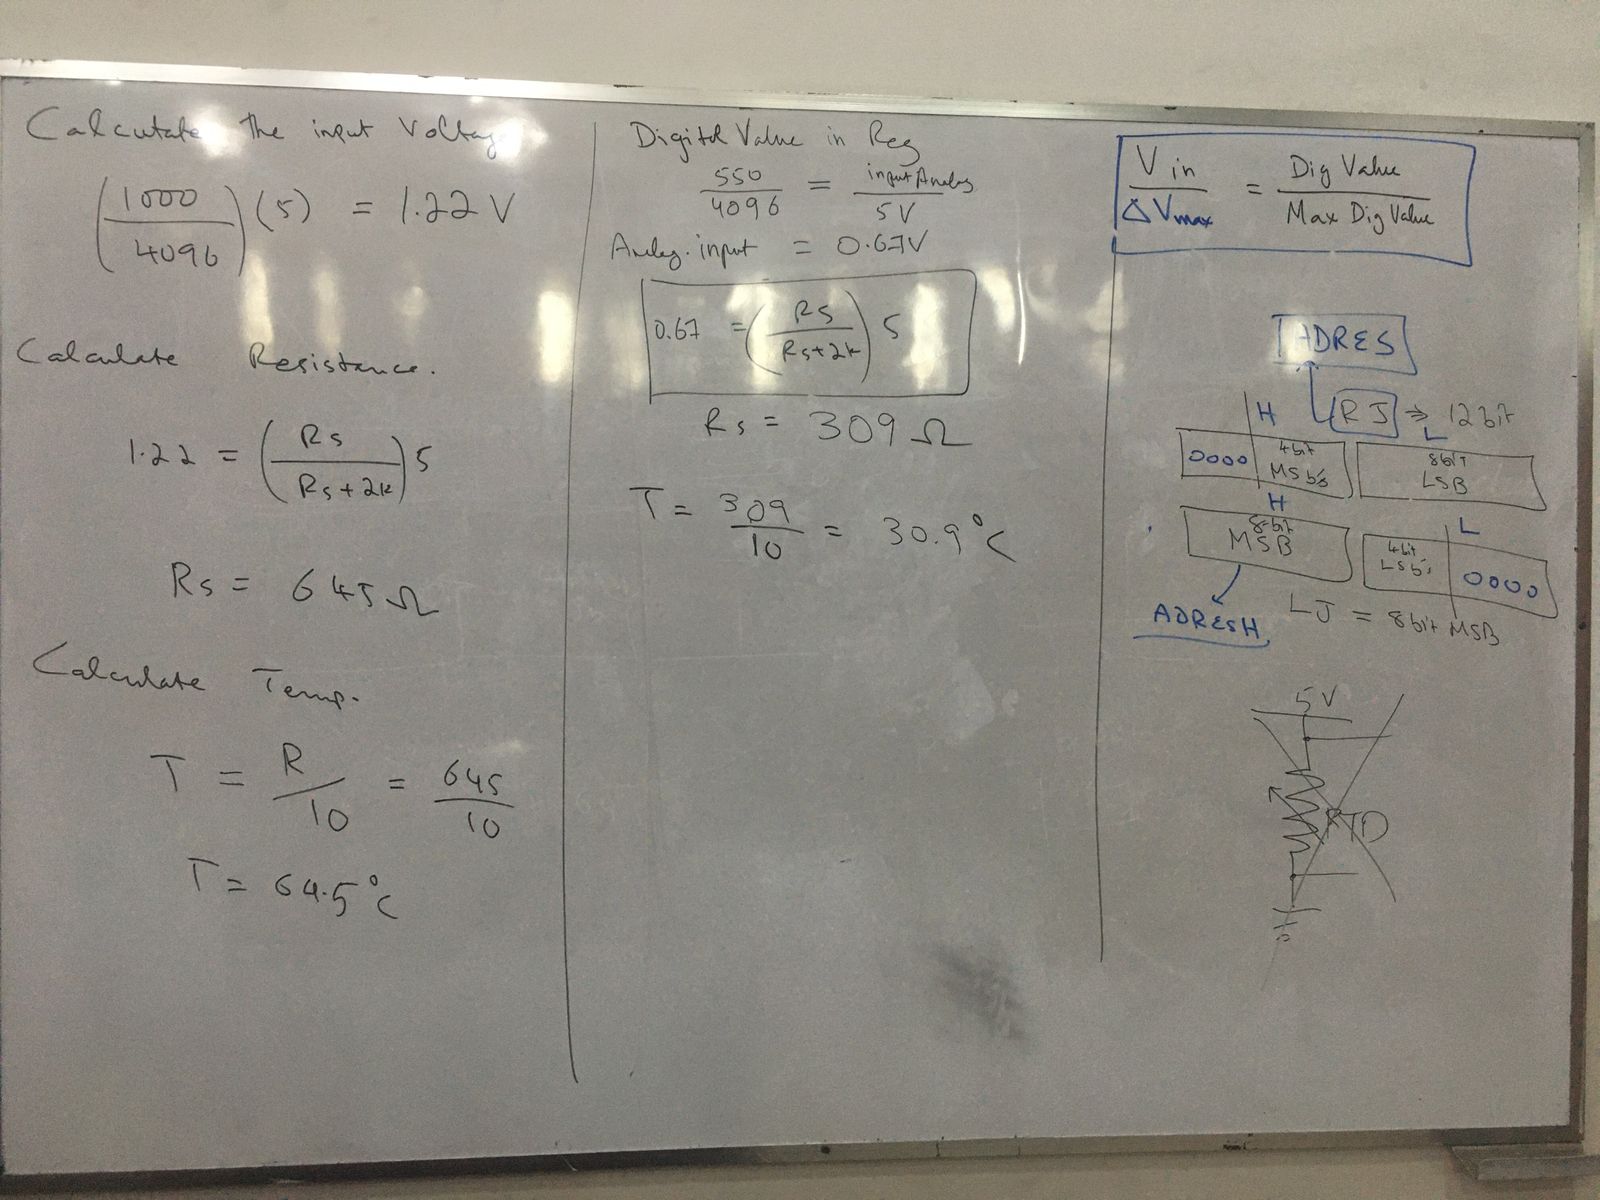 Calculate the input Voltage
(1000/4096)(5) = 1.22 V
Calculate Resistance.
1.22 = (Rs/Rs+2k) 5
Rs = 645 Ω
Calculate Temp.
T = R/10 = 645/10
T = 64.5°C
Digital Value in Reg
550/4096 = input Analog/5V
Analog. input = 0.67V
0.67 = (Rs/Rs+2k) 5
Rs = 309 Ω
T = 309/10 = 30.9°C
V in/ΔVmax = Dig Value/Max Dig Value
ADRES
RJ ⇒ 12 bit
H L
0000 4bit MSb's 8bit LSB
H L
8-bit MSB 4bit LSb's 0000
ADRESH
LJ = 8bit MSB
5 V
RTD